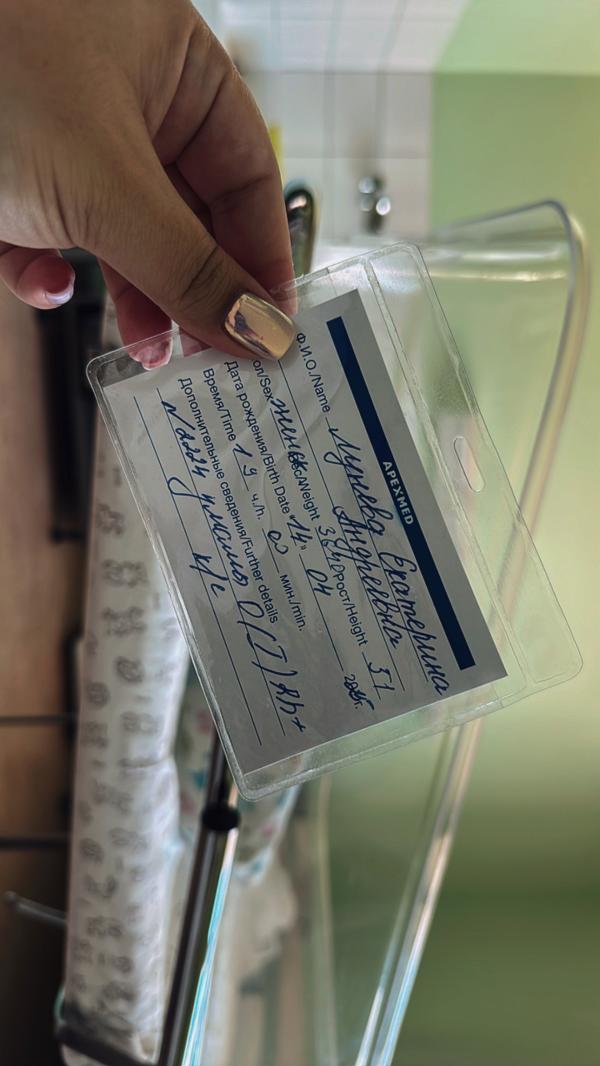 APEXMED
Ф.И.О./Name Лунева Екатерина
Андреевна
ол/Sex женск Вес/Weight 3640 Рост/Height 51
Дата рождения/Birth Date "14" 04
Время/Time 19 ч./h. 00 мин./min.
Дополнительные сведения/Further details
N 1224 O(I) Rh+
к/с